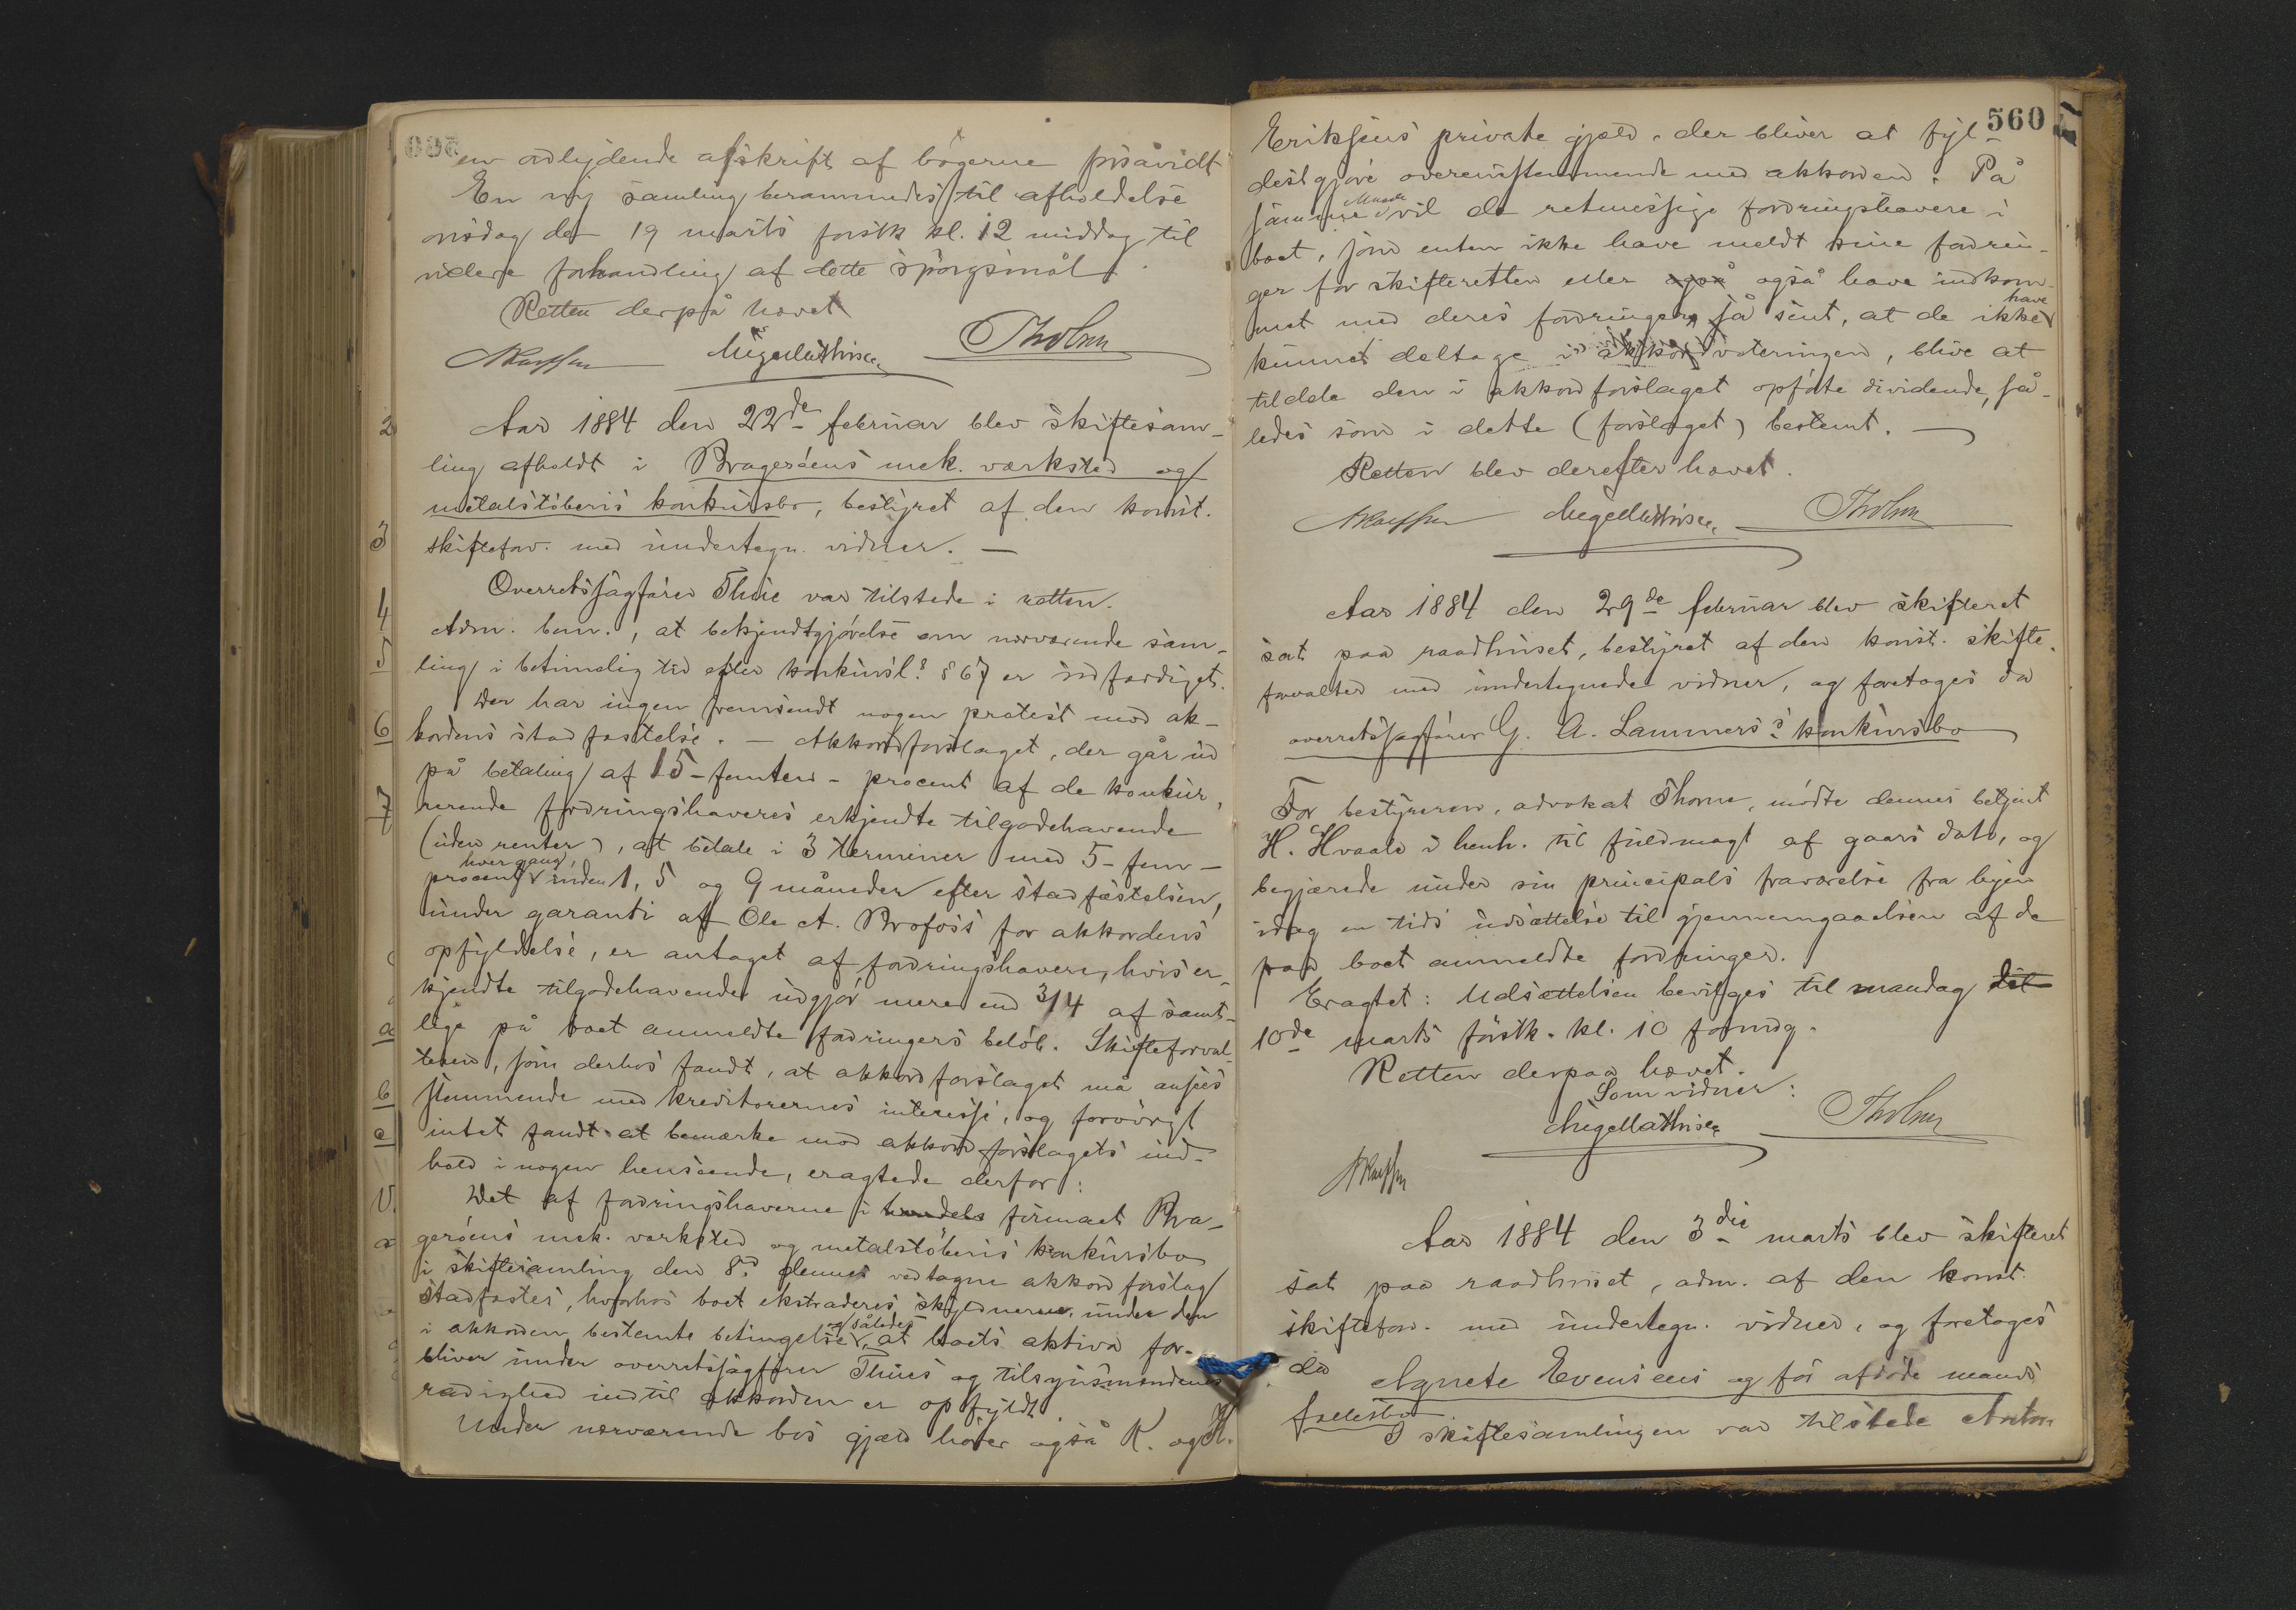 en ordlydende afskrift af bøgerne forsåvidt
En ny samling berammedes til afholdelse
onsdag den 19 marts førstk kl. 12 middag til
videre forhandling af dette spørgsmål.
Retten derpå hævet
Aar 1884 den 22de februar blev skiftesam-
ling afholdt i Bragerøens mek. værksted og
metalstøberis konkursbo, bestyret af den konst.
skifteforv. med undertegn. vidner. —
Overretssagfører Thiis var tilstede i retten.
Adm. bem., at bekjendtgjørelse om nærværende sam-
ling i betimelig tid efter konkursl.s § 67 er udfærdiget.
Der har ingen fremsendt nogen protest mod ak-
kordens stadfæstelse. — Akkordforslaget, der går ud
på betaling af 15 - femten - procent af de konkur-
rerende fordringshaveres erkjendte tilgodehavende
(uden renter), at betale i 3 terminer med 5 - fem -
hver gang,
procent inden 1, 5 og 9 måneder efter stadfæstelsen,
under garanti af Ole A. Brofoss for akkordens
opfyldelse, er antaget af fordringshavere, hvis er-
kjendte tilgodehavender udgjør mere end 3/4 af samt-
lige på boet anmeldte fordringers beløb. Skifteforval-
teren, som derhos fandt, at akkordforslaget må ansees
stemmende med kreditorernes interesse, og forøvrigt
intet fandt at bemærke mod akkordforslagets ind-
hold i nogen henseende, eragtede derfor:
Det af fordringshaverne i handels firmaet Bra-
gerøens mek. værksted og metalstøberis konkursbo
i skiftesamling den 8de dennes vedtagne akkordforslag
stadfæstes, hvorhos boet ekstraderes skyldnerne under den
og således
i akkorden bestemte betingelse, at boets aktiva for-
bliver under overretssagfører Thiis og tilsynsmændenes
rådighed indtil akkorden er opfyldt.
Under nærværende bos gjæld hører også K. og H.
560
Eriksens private gjæld, der bliver at fyl-
destgjøre overensstemmende med akkorden. På
samme Maade vil de retmessige fordringshavere i
boet, som enten ikke have meldt sine fordrin-
ger for skifteretten eller også også have indkom-
have
met med deres fordringer så sent, at de ikke
kunnet deltage i akkordvoteringen, blive at
tildele den i akkordforslaget opførte dividende, så-
ledes som i dette (forslaget) bestemt. —
Retten blev derefter hævet.
Aar 1884 den 29de februar blev skifteret
sat paa raadhuset, bestyret af den konst. skifte-
forvalter med undertegnede vidner, og foretoges da
overretssagfører G. A. Lammers's konkursbo
For bestyreren, advokat Thorne, mødte dennes betjent
H. Hvaale i henh. til fuldmagt af gaars dato, og
begjærede under sin principals fraværelse fra byen
idag en tids udsættelse til gjennemgaaelsen af de
paa boet anmeldte fordringer.
Eragtet: Udsættelsen bevilges til mandag del
10de marts førstk. kl. 10 formdg.
Retten derpaa hævet.
Som vidner:
Aar 1884 den 3die marts blev skifteret
sat paa raadhuset, adm. af den konst.
skifteforv. med undertegn. vidner, og foretoges
da Agnete Evensens og før afdøde mands
fællesbo
I skiftesamlingen var tilstede Anton